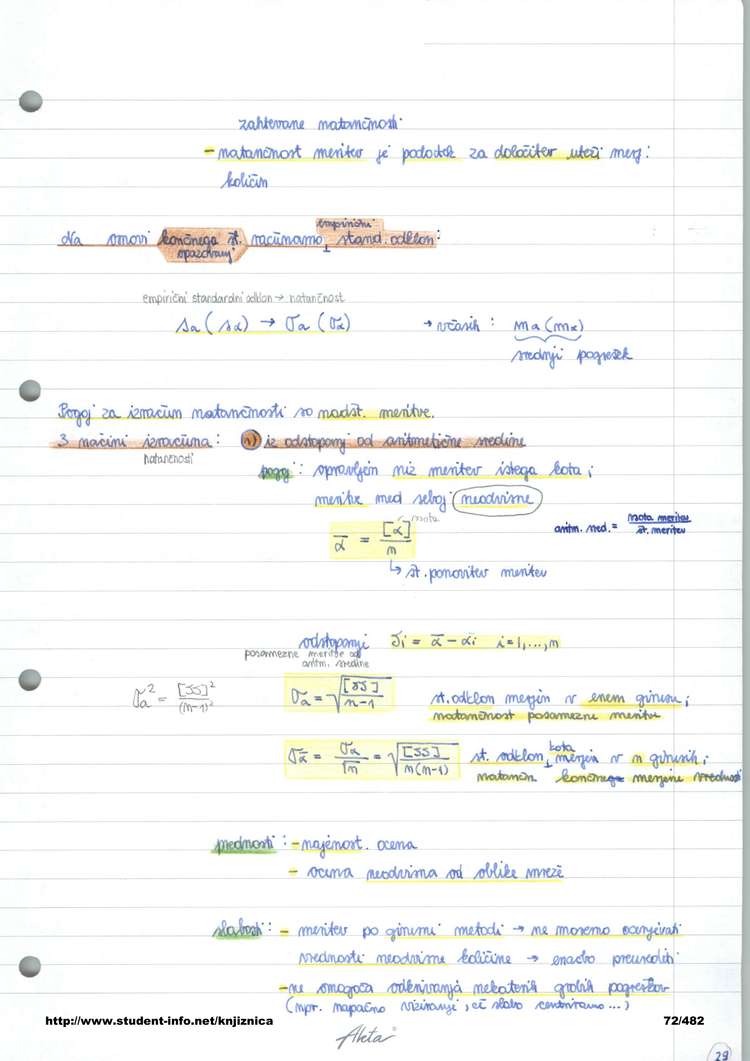 zahtevane natančnosti
- natančnost meritev je podatek za določitev uteži merj.
količin
empirični
Na osnovi končnega št. računamo stand. odklon:
opazovanj
empirični standardni odklon → natančnost
sa (sα) → σa (σα) → včasih: ma (mα)
srednji pogrešek
Pogoj za izračun natančnosti so nadšt. meritve.
3 načini izračuna: 1) iz odstopanj od aritmetične sredine
natančnosti
pogoj: opravljen niz meritev istega kota;
meritve med seboj neodvisne
ᾱ = [α] / n
vsota
aritm. sred. = vsota meritev / št. meritev
↳ št. ponovitev meritev
odstopanje δi = ᾱ - αi i = 1, ..., n
posamezne meritve od
aritm. sredine
σa² = [δδ]² / (n-1)²
σa = √[δδ] / n-1 st. odklon merjen v enem girusu;
natančnost posamezne meritve
σᾱ = σα / √n = √[δδ] / n(n-1) st. odklon kota merjen v n girusih;
natančn. končne merjene vrednosti
prednosti: - najenost. ocena
- ocena neodvisna od oblike mreže
slabosti: - meritev po girusni metodi → ne moremo ocenjevati
vrednosti neodvisne količine → enačbo preurediti
- ne omogoča odkrivanja nekaterih grobih pogreškov
(npr. napačno viziranje, če slabo centriramo...)
http://www.student-info.net/knjiznica 72/482
Akta
29